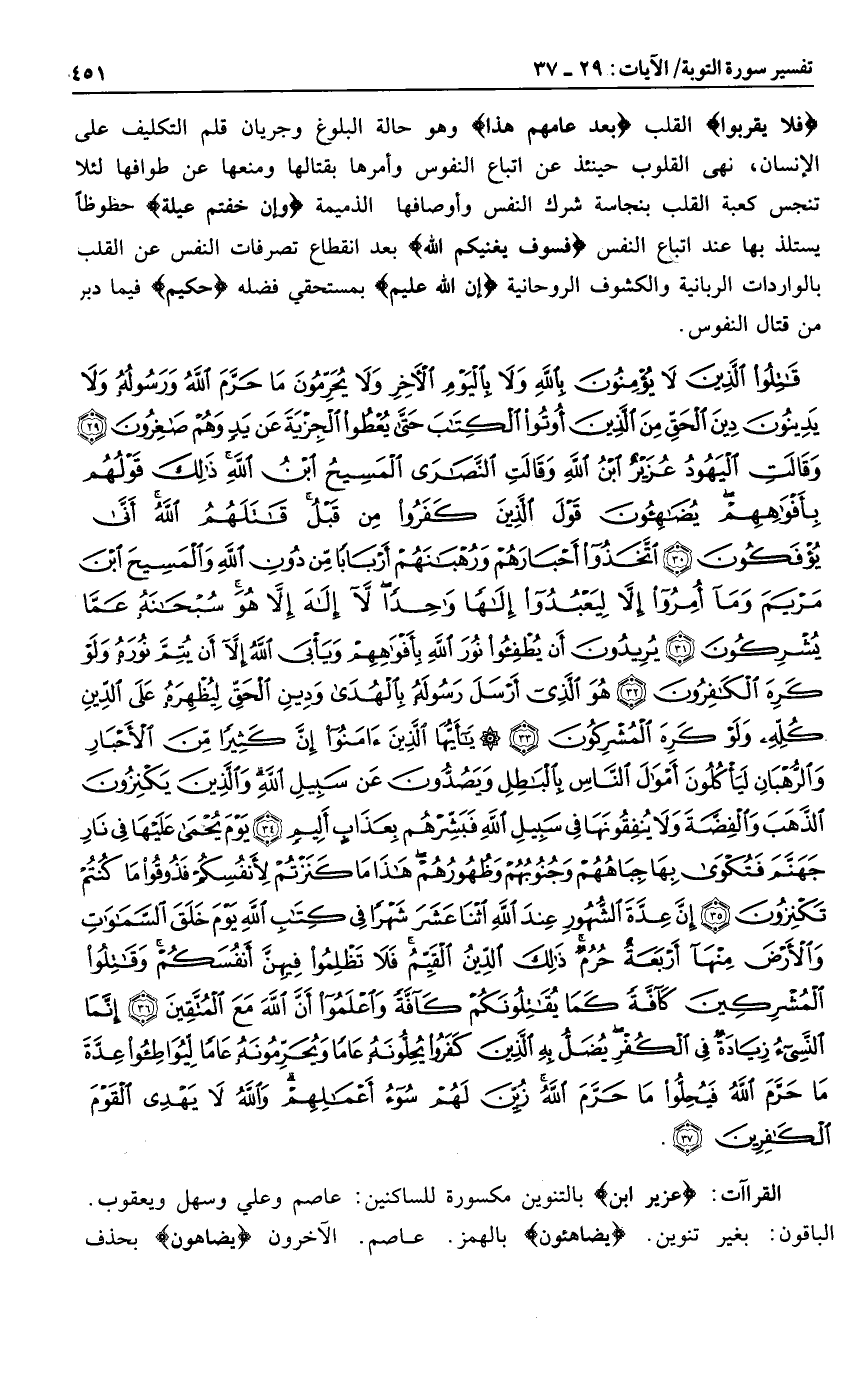 تفسير سورة التوبة/ الآيات: ٢٩ ـ ٣٧ ٤٥١
﴿فلا يقربوا﴾ القلب ﴿بعد عامهم هذا﴾ وهو حالة البلوغ وجريان قلم التكليف على
الإنسان، نهى القلوب حينئذ عن اتباع النفوس وأمرها بقتالها ومنعها عن طوافها لئلا
تنجس كعبة القلب بنجاسة شرك النفس وأوصافها الذميمة ﴿وإن خفتم عيلة﴾ حظوظاً
يستلذ بها عند اتباع النفس ﴿فسوف يغنيكم الله﴾ بعد انقطاع تصرفات النفس عن القلب
بالواردات الربانية والكشوف الروحانية ﴿إن الله عليم﴾ بمستحقي فضله ﴿حكيم﴾ فيما دبر
من قتال النفوس.
قَٰتِلُوا۟ ٱلَّذِينَ لَا يُؤْمِنُونَ بِٱللَّهِ وَلَا بِٱلْيَوْمِ ٱلْءَاخِرِ وَلَا يُحَرِّمُونَ مَا حَرَّمَ ٱللَّهُ وَرَسُولُهُۥ وَلَا
يَدِينُونَ دِينَ ٱلْحَقِّ مِنَ ٱلَّذِينَ أُوتُوا۟ ٱلْكِتَٰبَ حَتَّىٰ يُعْطُوا۟ ٱلْجِزْيَةَ عَن يَدٍ وَهُمْ صَٰغِرُونَ ﴿٢٩﴾
وَقَالَتِ ٱلْيَهُودُ عُزَيْرٌ ٱبْنُ ٱللَّهِ وَقَالَتِ ٱلنَّصَٰرَى ٱلْمَسِيحُ ٱبْنُ ٱللَّهِ ۖ ذَٰلِكَ قَوْلُهُم
بِأَفْوَٰهِهِمْ ۖ يُضَٰهِـُٔونَ قَوْلَ ٱلَّذِينَ كَفَرُوا۟ مِن قَبْلُ ۚ قَٰتَلَهُمُ ٱللَّهُ ۚ أَنَّىٰ
يُؤْفَكُونَ ﴿٣٠﴾ ٱتَّخَذُوٓا۟ أَحْبَارَهُمْ وَرُهْبَٰنَهُمْ أَرْبَابًا مِّن دُونِ ٱللَّهِ وَٱلْمَسِيحَ ٱبْنَ
مَرْيَمَ وَمَآ أُمِرُوٓا۟ إِلَّا لِيَعْبُدُوٓا۟ إِلَٰهًا وَٰحِدًا ۖ لَّآ إِلَٰهَ إِلَّا هُوَ ۚ سُبْحَٰنَهُۥ عَمَّا
يُشْرِكُونَ ﴿٣١﴾ يُرِيدُونَ أَن يُطْفِـُٔوا۟ نُورَ ٱللَّهِ بِأَفْوَٰهِهِمْ وَيَأْبَى ٱللَّهُ إِلَّآ أَن يُتِمَّ نُورَهُۥ وَلَوْ
كَرِهَ ٱلْكَٰفِرُونَ ﴿٣٢﴾ هُوَ ٱلَّذِىٓ أَرْسَلَ رَسُولَهُۥ بِٱلْهُدَىٰ وَدِينِ ٱلْحَقِّ لِيُظْهِرَهُۥ عَلَى ٱلدِّينِ
كُلِّهِۦ وَلَوْ كَرِهَ ٱلْمُشْرِكُونَ ﴿٣٣﴾ ۞ يَٰٓأَيُّهَا ٱلَّذِينَ ءَامَنُوٓا۟ إِنَّ كَثِيرًا مِّنَ ٱلْأَحْبَارِ
وَٱلرُّهْبَانِ لَيَأْكُلُونَ أَمْوَٰلَ ٱلنَّاسِ بِٱلْبَٰطِلِ وَيَصُدُّونَ عَن سَبِيلِ ٱللَّهِ ۗ وَٱلَّذِينَ يَكْنِزُونَ
ٱلذَّهَبَ وَٱلْفِضَّةَ وَلَا يُنفِقُونَهَا فِى سَبِيلِ ٱللَّهِ فَبَشِّرْهُم بِعَذَابٍ أَلِيمٍ ﴿٣٤﴾ يَوْمَ يُحْمَىٰ عَلَيْهَا فِى نَارِ
جَهَنَّمَ فَتُكْوَىٰ بِهَا جِبَاهُهُمْ وَجُنُوبُهُمْ وَظُهُورُهُمْ ۖ هَٰذَا مَا كَنَزْتُمْ لِأَنفُسِكُمْ فَذُوقُوا۟ مَا كُنتُمْ
تَكْنِزُونَ ﴿٣٥﴾ إِنَّ عِدَّةَ ٱلشُّهُورِ عِندَ ٱللَّهِ ٱثْنَا عَشَرَ شَهْرًا فِى كِتَٰبِ ٱللَّهِ يَوْمَ خَلَقَ ٱلسَّمَٰوَٰتِ
وَٱلْأَرْضَ مِنْهَآ أَرْبَعَةٌ حُرُمٌ ۚ ذَٰلِكَ ٱلدِّينُ ٱلْقَيِّمُ ۚ فَلَا تَظْلِمُوا۟ فِيهِنَّ أَنفُسَكُمْ ۚ وَقَٰتِلُوا۟
ٱلْمُشْرِكِينَ كَآفَّةً كَمَا يُقَٰتِلُونَكُمْ كَآفَّةً ۚ وَٱعْلَمُوٓا۟ أَنَّ ٱللَّهَ مَعَ ٱلْمُتَّقِينَ ﴿٣٦﴾ إِنَّمَا
ٱلنَّسِىٓءُ زِيَادَةٌ فِى ٱلْكُفْرِ ۖ يُضَلُّ بِهِ ٱلَّذِينَ كَفَرُوا۟ يُحِلُّونَهُۥ عَامًا وَيُحَرِّمُونَهُۥ عَامًا لِّيُوَاطِـُٔوا۟ عِدَّةَ
مَا حَرَّمَ ٱللَّهُ فَيُحِلُّوا۟ مَا حَرَّمَ ٱللَّهُ ۚ زُيِّنَ لَهُمْ سُوٓءُ أَعْمَٰلِهِمْ ۗ وَٱللَّهُ لَا يَهْدِى ٱلْقَوْمَ
ٱلْكَٰفِرِينَ ﴿٣٧﴾.
القراآت: ﴿عزير ابن﴾ بالتنوين مكسورة للساكنين: عاصم وعلي وسهل ويعقوب.
الباقون: بغير تنوين. ﴿يضاهئون﴾ بالهمز. عاصم. الآخرون ﴿يضاهون﴾ بحذف